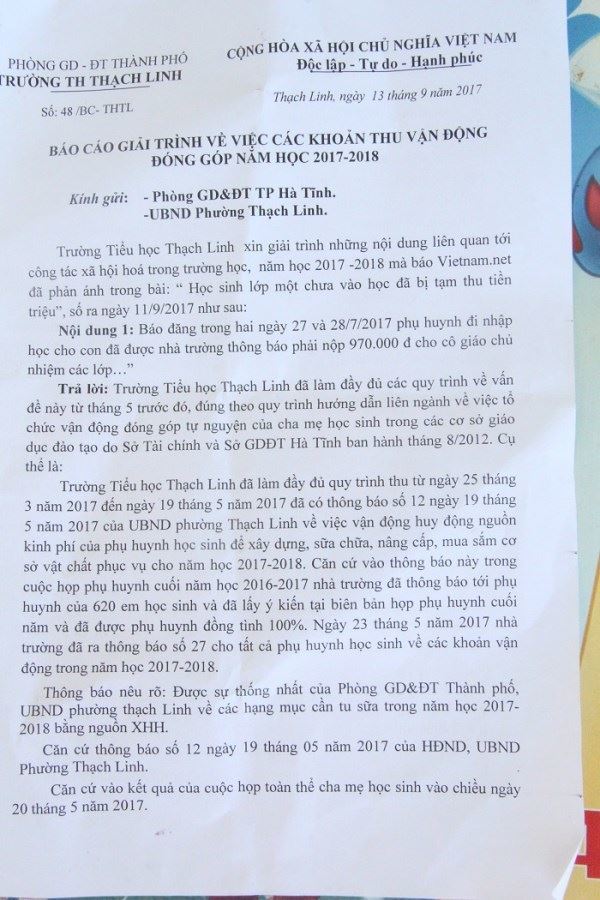 PHÒNG GD - ĐT THÀNH PHỐ
TRƯỜNG TH THẠCH LINH
Số: 48 /BC- THTL
CỘNG HÒA XÃ HỘI CHỦ NGHĨA VIỆT NAM
Độc lập - Tự do - Hạnh phúc
Thạch Linh, ngày 13 tháng 9 năm 2017
BÁO CÁO GIẢI TRÌNH VỀ VIỆC CÁC KHOẢN THU VẬN ĐỘNG
ĐÓNG GÓP NĂM HỌC 2017-2018
Kính gửi: - Phòng GD&ĐT TP Hà Tĩnh.
-UBND Phường Thạch Linh.
Trường Tiểu học Thạch Linh xin giải trình những nội dung liên quan tới
công tác xã hội hoá trong trường học, năm học 2017 -2018 mà báo Vietnam.net
đã phản ánh trong bài: “ Học sinh lớp một chưa vào học đã bị tạm thu tiền
triệu”, số ra ngày 11/9/2017 như sau:
Nội dung 1: Báo đăng trong hai ngày 27 và 28/7/2017 phụ huynh đi nhập
học cho con đã được nhà trường thông báo phải nộp 970.000 đ cho cô giáo chủ
nhiệm các lớp…”
Trả lời: Trường Tiểu học Thạch Linh đã làm đầy đủ các quy trình về vấn
đề này từ tháng 5 trước đó, đúng theo quy trình hướng dẫn liên ngành về việc tổ
chức vận động đóng góp tự nguyện của cha mẹ học sinh trong các cơ sở giáo
dục đào tạo do Sở Tài chính và Sở GDĐT Hà Tĩnh ban hành tháng 8/2012. Cụ
thể là:
Trường Tiểu học Thạch Linh đã làm đầy đủ quy trình thu từ ngày 25 tháng
3 năm 2017 đến ngày 19 tháng 5 năm 2017 đã có thông báo số 12 ngày 19 tháng
5 năm 2017 của UBND phường Thạch Linh về việc vận động huy động nguồn
kinh phí của phụ huynh học sinh để xây dựng, sữa chữa, nâng cấp, mua sắm cơ
sở vật chất phục vụ cho năm học 2017-2018. Căn cứ vào thông báo này trong
cuộc họp phụ huynh cuối năm học 2016-2017 nhà trường đã thông báo tới phụ
huynh của 620 em học sinh và đã lấy ý kiến tại biên bản họp phụ huynh cuối
năm và đã được phụ huynh đồng tình 100%. Ngày 23 tháng 5 năm 2017 nhà
trường đã ra thông báo số 27 cho tất cả phụ huynh học sinh về các khoản vận
động trong năm học 2017-2018.
Thông báo nêu rõ: Được sự thống nhất của Phòng GD&ĐT Thành phố,
UBND phường thạch Linh về các hạng mục cần tu sữa trong năm học 2017-
2018 bằng nguồn XHH.
Căn cứ thông báo số 12 ngày 19 tháng 05 năm 2017 của HĐND, UBND
Phường Thạch Linh.
Căn cứ vào kết quả của cuộc họp toàn thể cha mẹ học sinh vào chiều ngày
20 tháng 5 năm 2017.